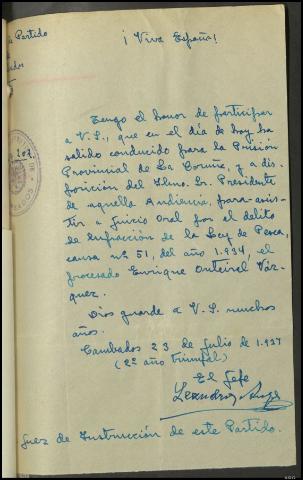 Partido
¡Viva España!
Tengo el honor de participar
a V.S., que en el día de hoy ha
salido conducido para la Prisión
Provincial de La Coruña, y a dis-
posición del Ilmo. Sr. Presidente
de aquella Audiencia, para asis-
tir a Juicio Oral por el delito
de Infracción de la Ley de Pesca,
causa nº 51, del año 1.934, el
procesado Enrique Outeiral Váz-
quez.
Dios guarde a V.S. muchos
años.
Cambados 23 de Julio de 1.937
(2º año triunfal)
El Jefe
Leandro
Juez de Instrucción de este Partido.